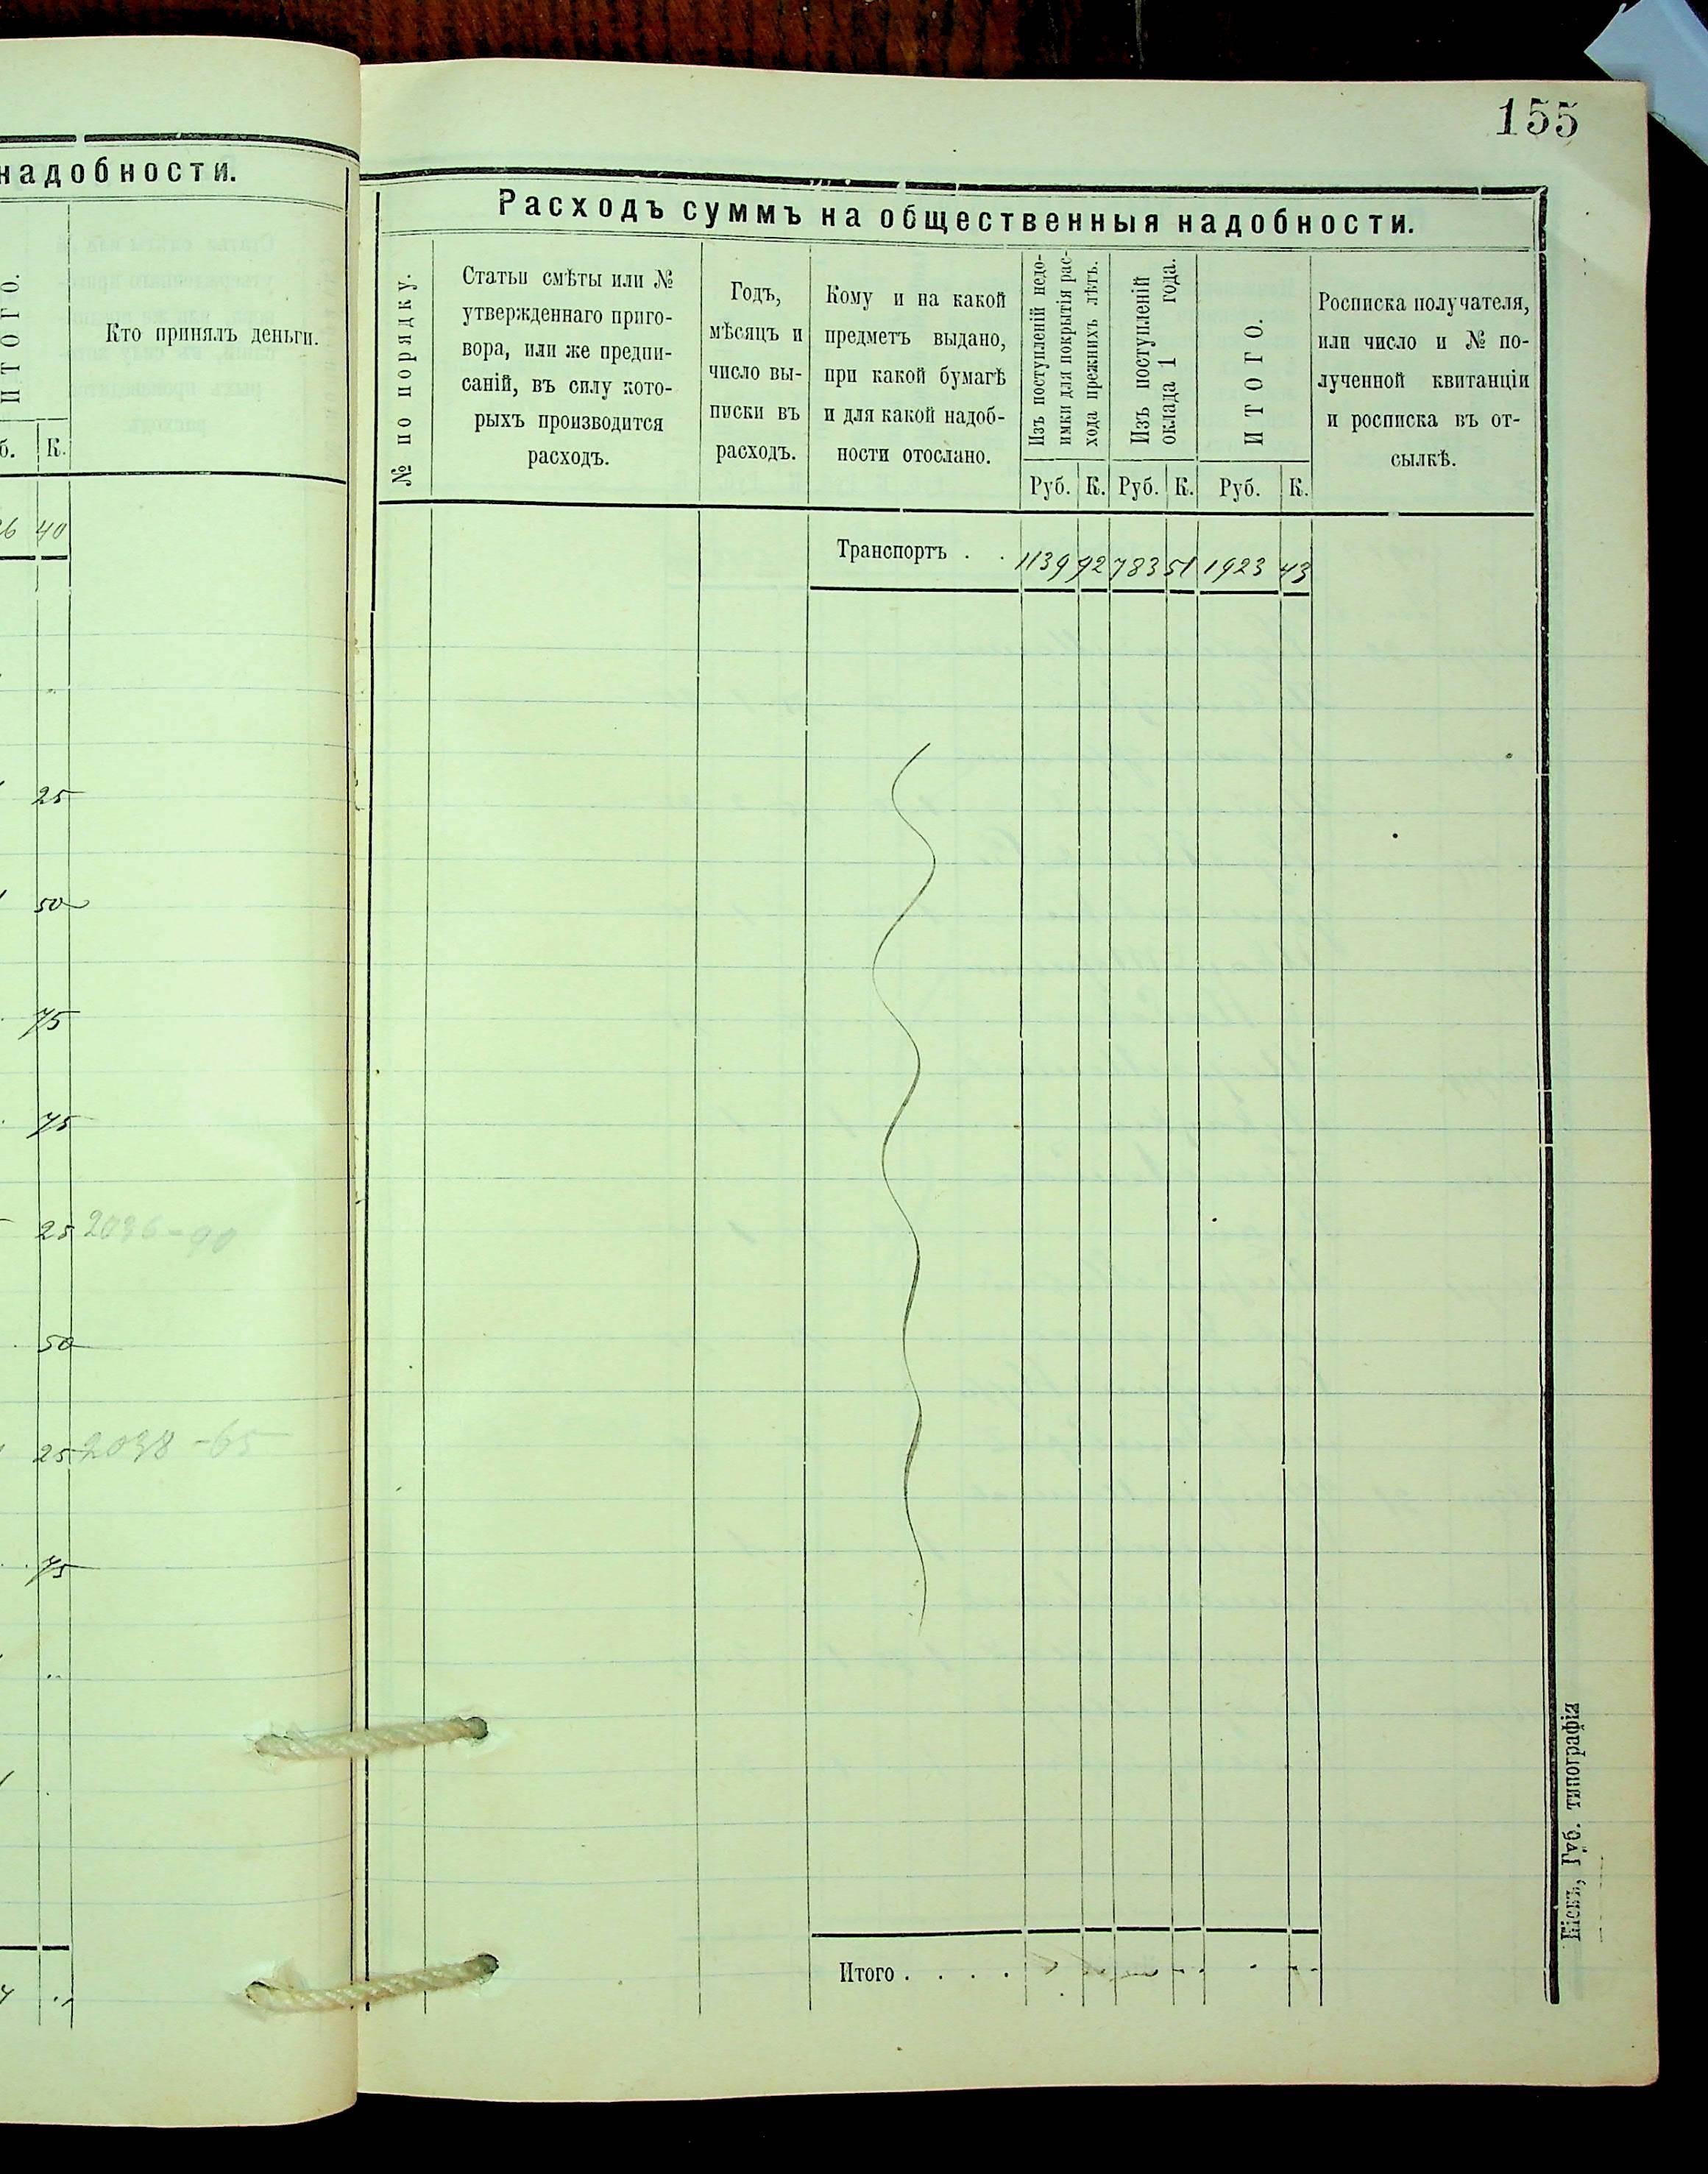 надобности.
ИТОГО.
Кто принялъ деньги.
б. К.
6 40
25
50
75
75
25 2036-90
50
25 2038-65
75
155
Расходъ суммъ на общественныя надобности.
№ по порядку.
Статьи смѣты или №
утвержденнаго приго-
вора, или же предпи-
саній, въ силу кото-
рыхъ производится
расходъ.
Годъ,
мѣсяцъ и
число вы-
писки въ
расходъ.
Кому и на какой
предметъ выдано,
при какой бумагѣ
и для какой надоб-
ности отослано.
Изъ поступленій недо-
имки для покрытія рас-
хода прежнихъ лѣтъ.
Изъ поступленій
оклада 1 года.
ИТОГО.
Росписка получателя,
или число и № по-
лученной квитанціи
и росписка въ от-
сылкѣ.
Руб. К. Руб. К. Руб. К.
Транспортъ . . 1139 92 783 51 1923 43
Итого . . . .
Губ. типографія